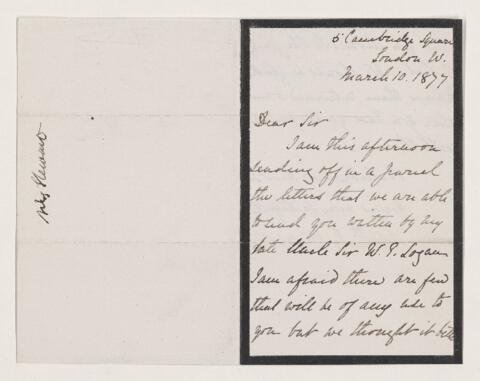 5 Cambridge Square
London W.
March 10. 1877
Dear Sir
I am this afternoon
sending off in a parcel
the letters that we are able
to lend you written by my
late Uncle Sir W. E. Logan
I am afraid there are few
that will be of any use to
you but we thought it
Miss